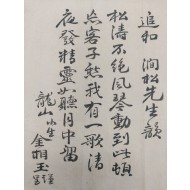 追和 澗松先生韻
松濤不絕風琴動到此頓
忘客子愁我有一歌清
夜發精靈如聽月中留
龍山小生
金相玉